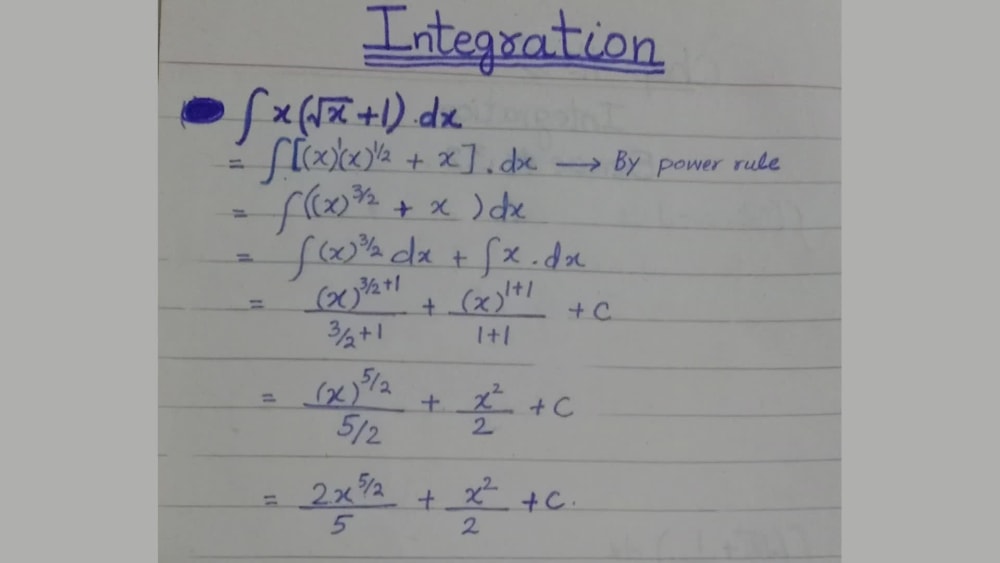 Integration
∫ x(√x + 1) . dx
= ∫[(x)¹(x)^1/2 + x] . dx → By power rule
= ∫((x)^3/2 + x ) dx
= ∫(x)^3/2 dx + ∫x . dx
= (x)^3/2+1 / 3/2+1 + (x)^1+1 / 1+1 + C
= (x)^5/2 / 5/2 + x² / 2 + C
= 2x^5/2 / 5 + x² / 2 + C.